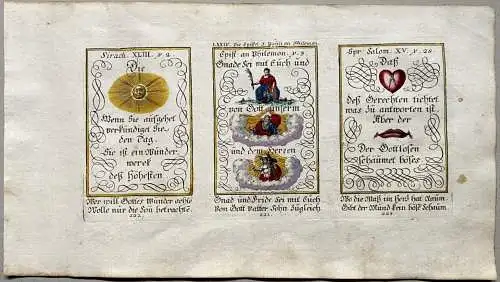 Sirach. XLIII. v. 2.
Die
Wenn Sie aufgehet
verkündiget Sie
den Tag
Sie ist ein Wunder
werck
deß Höhesten
Wer will Gottes Wunder
Wolle nur die Soñ betrachtē
LXXIV. Die Epistel S. Pauli an Philemon.
Epist. an Philemon. v. 3.
Gnade Sei mit Euch und
von Gott unserm
und dem Herren
Gnad und Fride Sei mit Euch
Vom Gott Vatter Sohn Zugleich
222.
Spr. Salom. XV. v. 28.
Daß
deß Gerechten tichtet
was Zu antworten ist.
Aber der
Der Gottlosen
schäumet böses
Wo die Maß im Herz hat Raum
Gibt der Mund kein böß Schaum